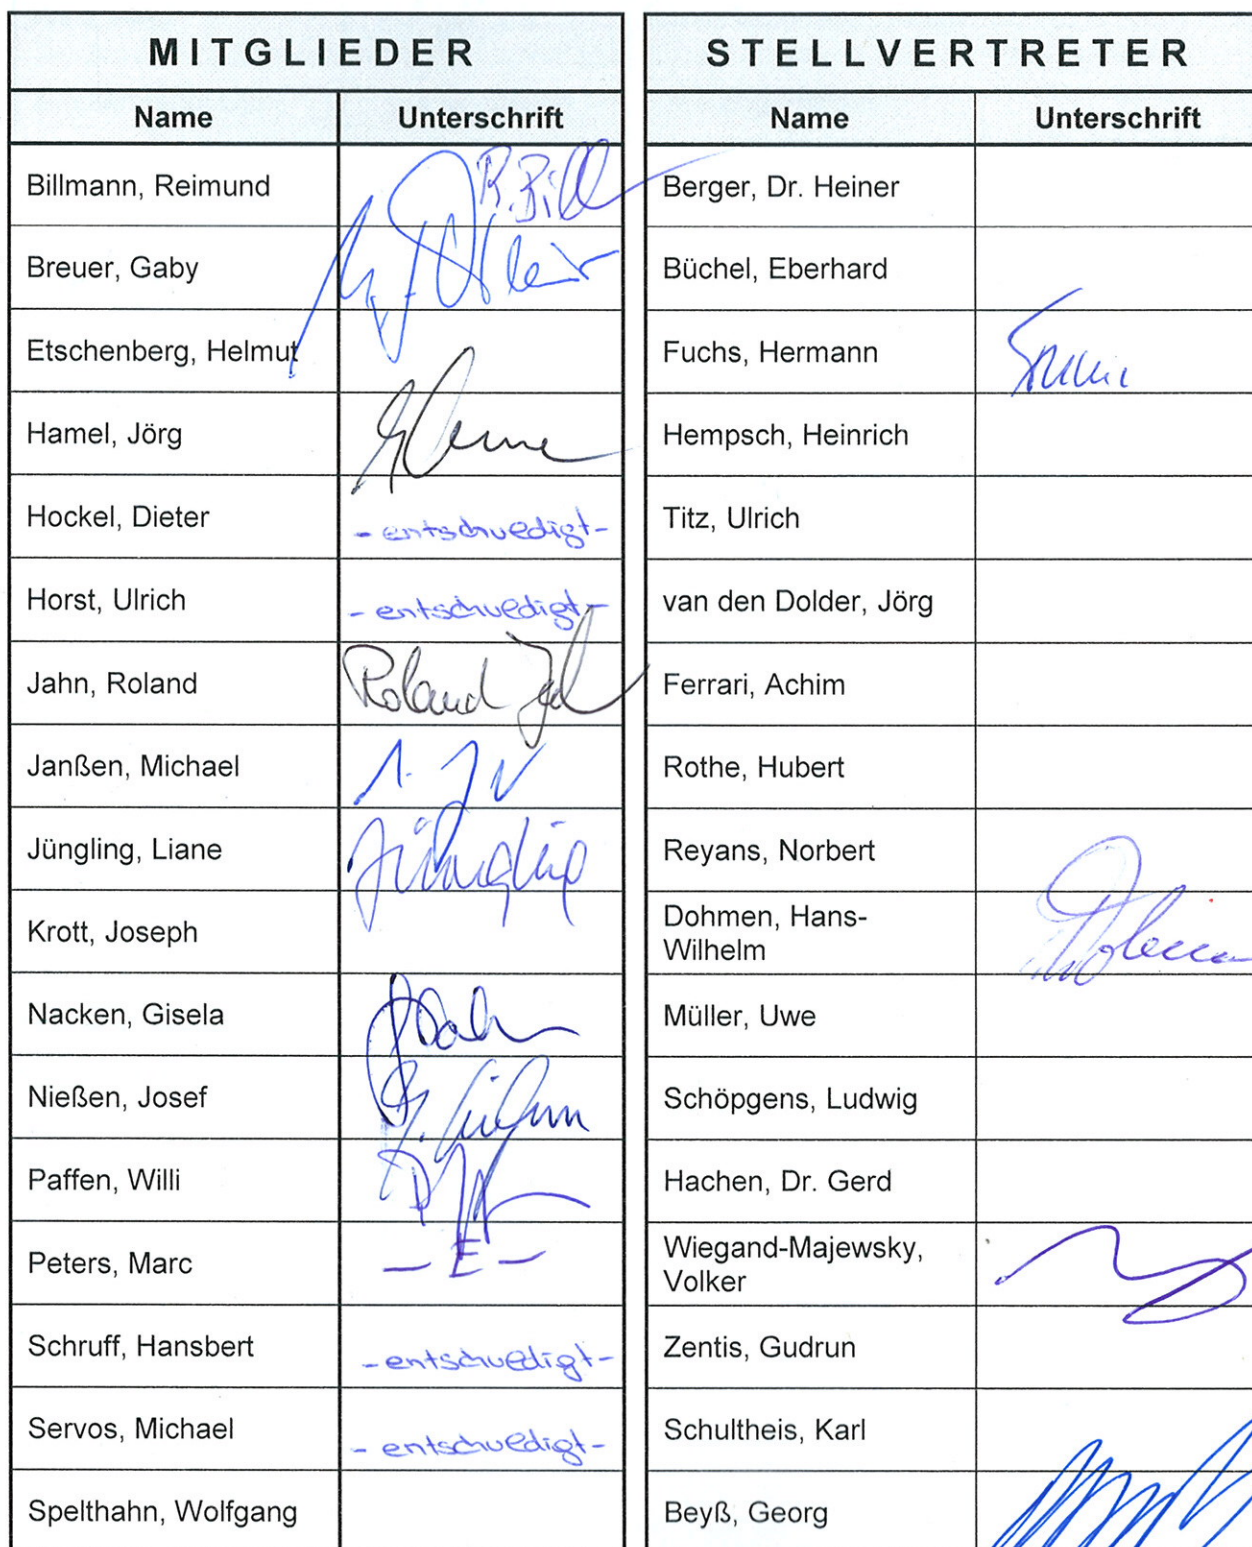 MITGLIEDER
Name Unterschrift
Billmann, Reimund R. Bill
Breuer, Gaby
Etschenberg, Helmut
Hamel, Jörg
Hockel, Dieter - entschuldigt -
Horst, Ulrich - entschuldigt -
Jahn, Roland Roland Jahn
Janßen, Michael
Jüngling, Liane Jüngling
Krott, Joseph
Nacken, Gisela
Nießen, Josef
Paffen, Willi
Peters, Marc - E -
Schruff, Hansbert - entschuldigt -
Servos, Michael - entschuldigt -
Spelthahn, Wolfgang
STELLVERTRETER
Name Unterschrift
Berger, Dr. Heiner
Büchel, Eberhard
Fuchs, Hermann
Hempsch, Heinrich
Titz, Ulrich
van den Dolder, Jörg
Ferrari, Achim
Rothe, Hubert
Reyans, Norbert
Dohmen, Hans-
Wilhelm
Müller, Uwe
Schöpgens, Ludwig
Hachen, Dr. Gerd
Wiegand-Majewsky,
Volker
Zentis, Gudrun
Schultheis, Karl
Beyß, Georg